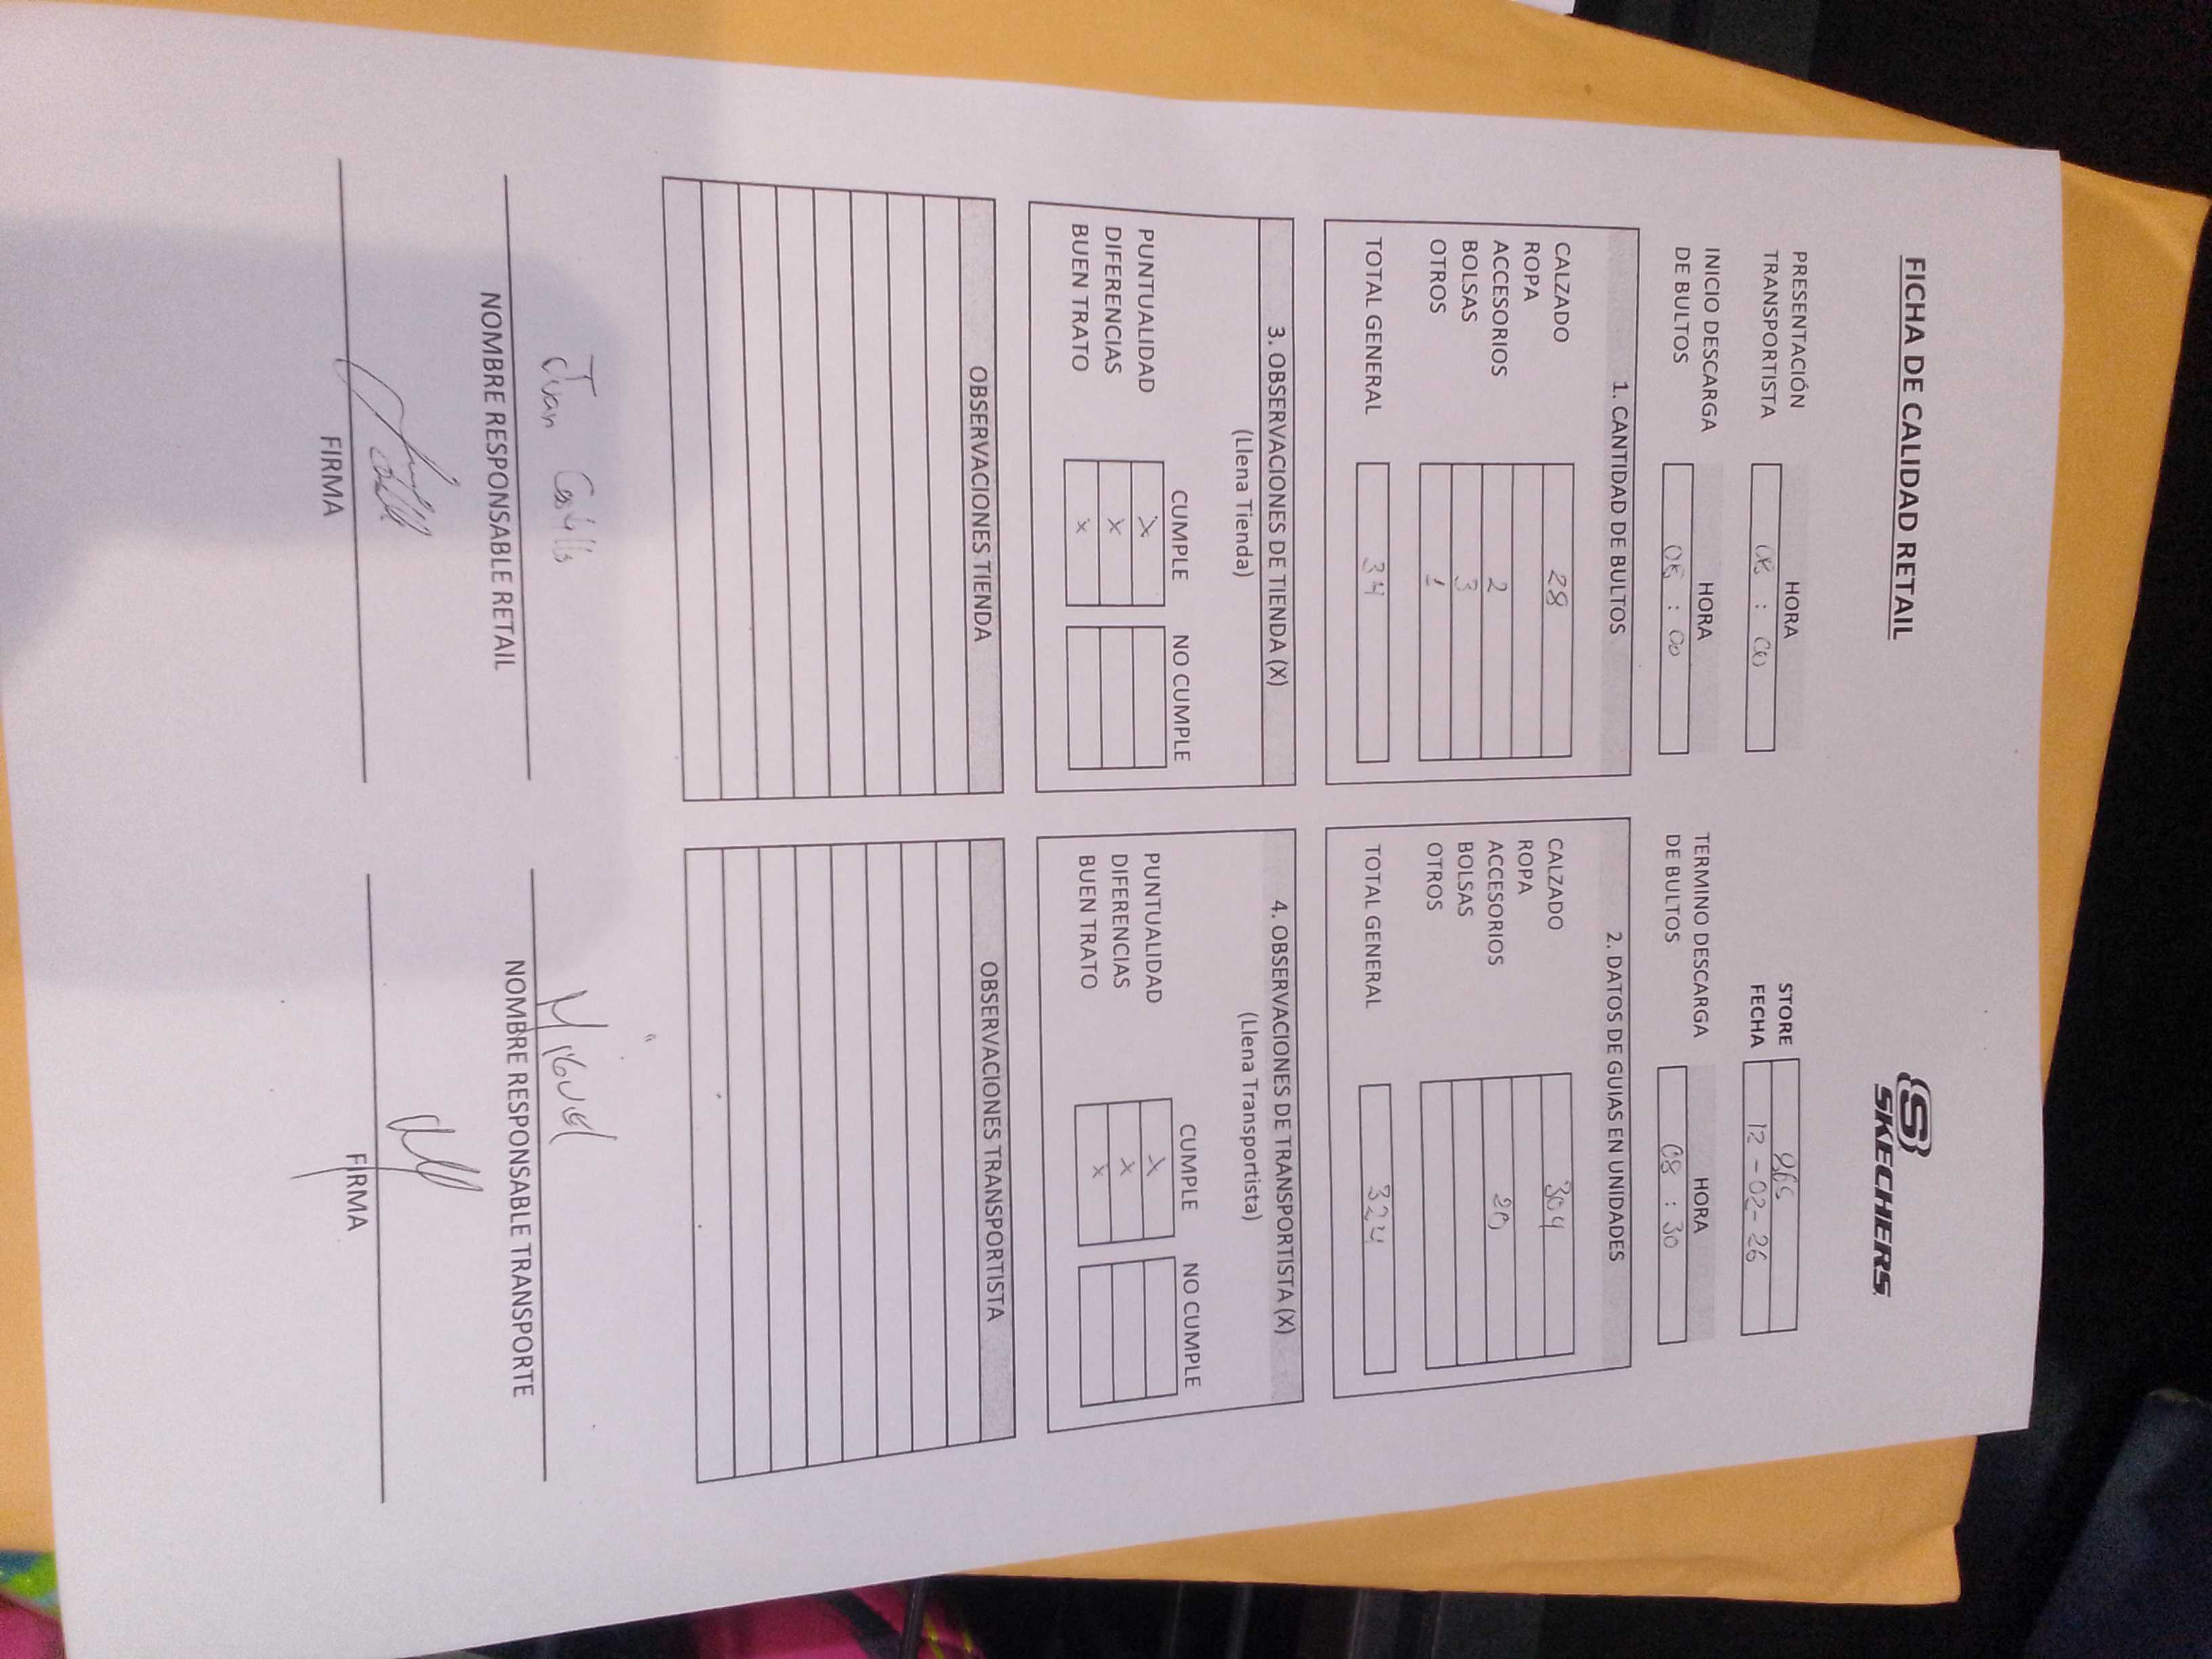 FICHA DE CALIDAD RETAIL
SKECHERS
STORE
FECHA 12-02-26
PRESENTACIÓN TRANSPORTISTA
HORA
08 : 00
INICIO DESCARGA DE BULTOS
HORA
08 : 00
TERMINO DESCARGA DE BULTOS
HORA
08 : 30
1. CANTIDAD DE BULTOS
CALZADO 28
ROPA
ACCESORIOS 2
BOLSAS 3
OTROS 1
TOTAL GENERAL 34
2. DATOS DE GUIAS EN UNIDADES
CALZADO 304
ROPA
ACCESORIOS 20
BOLSAS
OTROS
TOTAL GENERAL 324
3. OBSERVACIONES DE TIENDA (X)
(Llena Tienda)
CUMPLE NO CUMPLE
PUNTUALIDAD X
DIFERENCIAS X
BUEN TRATO X
4. OBSERVACIONES DE TRANSPORTISTA (X)
(Llena Transportista)
CUMPLE NO CUMPLE
PUNTUALIDAD X
DIFERENCIAS X
BUEN TRATO X
OBSERVACIONES TIENDA
OBSERVACIONES TRANSPORTISTA
Juan Castillo
NOMBRE RESPONSABLE RETAIL
FIRMA
Miguel
NOMBRE RESPONSABLE TRANSPORTE
FIRMA